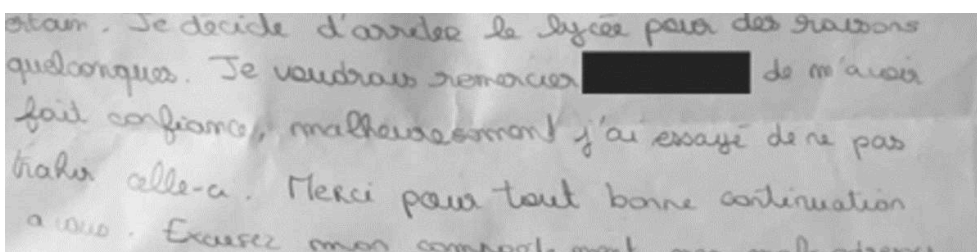 Je décide d'arreter le lycée pour des raisons
quelconques. Je voudrais remercier de m'avoir
fait confiance, malheuresement j'ai essayé de ne pas
trahir celle-ci. Merci pour tout bonne continuation
a vous. Excusez mon